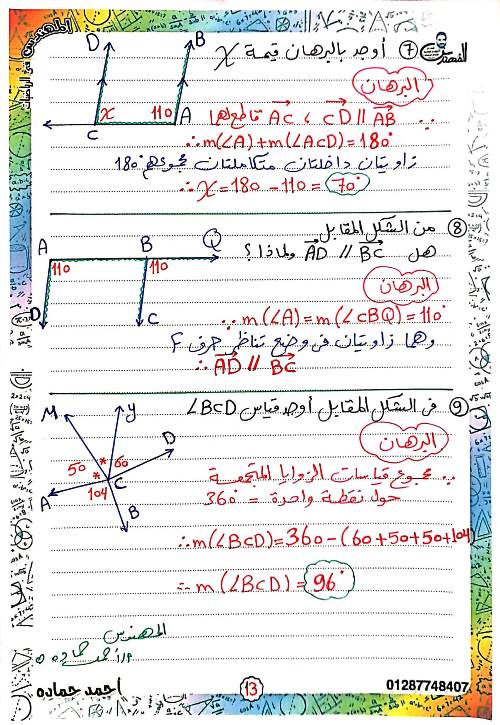 المهندس في الرياضيات
المهندس
⑦ أوجد بالبرهان قيمة x
D B
x 110
C A
البرهان
∵ CD // AB ، AC قاطع لهما
∴ m(∠A)+m(∠ACD)=180°
زاويتان داخلتان متكاملتان مجموعهم 180°
∴ x = 180 - 110 = 70°
⑧ من الشكل المقابل
هل AD // BC ولماذا ؟
A B Q
110 110
D C
البرهان
∵ m(∠A) = m(∠CBQ) = 110°
وهما زاويتان فى وضع تناظر حرف F
∴ AD // BC
⑨ فى الشكل المقابل أوجد قياس ∠BCD
M y D
50 * 60
* C
A 104
B
البرهان
∵ مجموع قياسات الزوايا المتجمعة
حول نقطة واحدة = 360°
∴ m(∠BCD) = 360 - (60+50+50+104)
∴ m(∠BCD) = 96°
المهندس
أ/ أحمد حماده
احمد حماده
13
01287748407